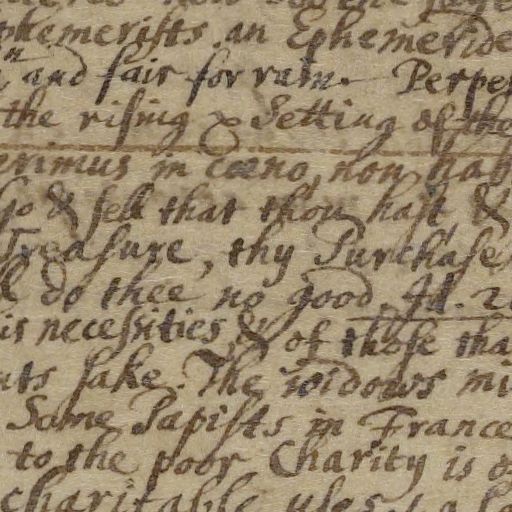 phemerists. an Ephemeride
and fair for rain. Perpe
the rising & Setting of the
erimus in cœno, non hab
go & sell that thou hast &
Treasure, thy Purchase
do thee no good. Id. 2
is necessities, & of those tha
nts sake. The widows mi
Some Papists in France
to the poor Charity is o
charitable uses